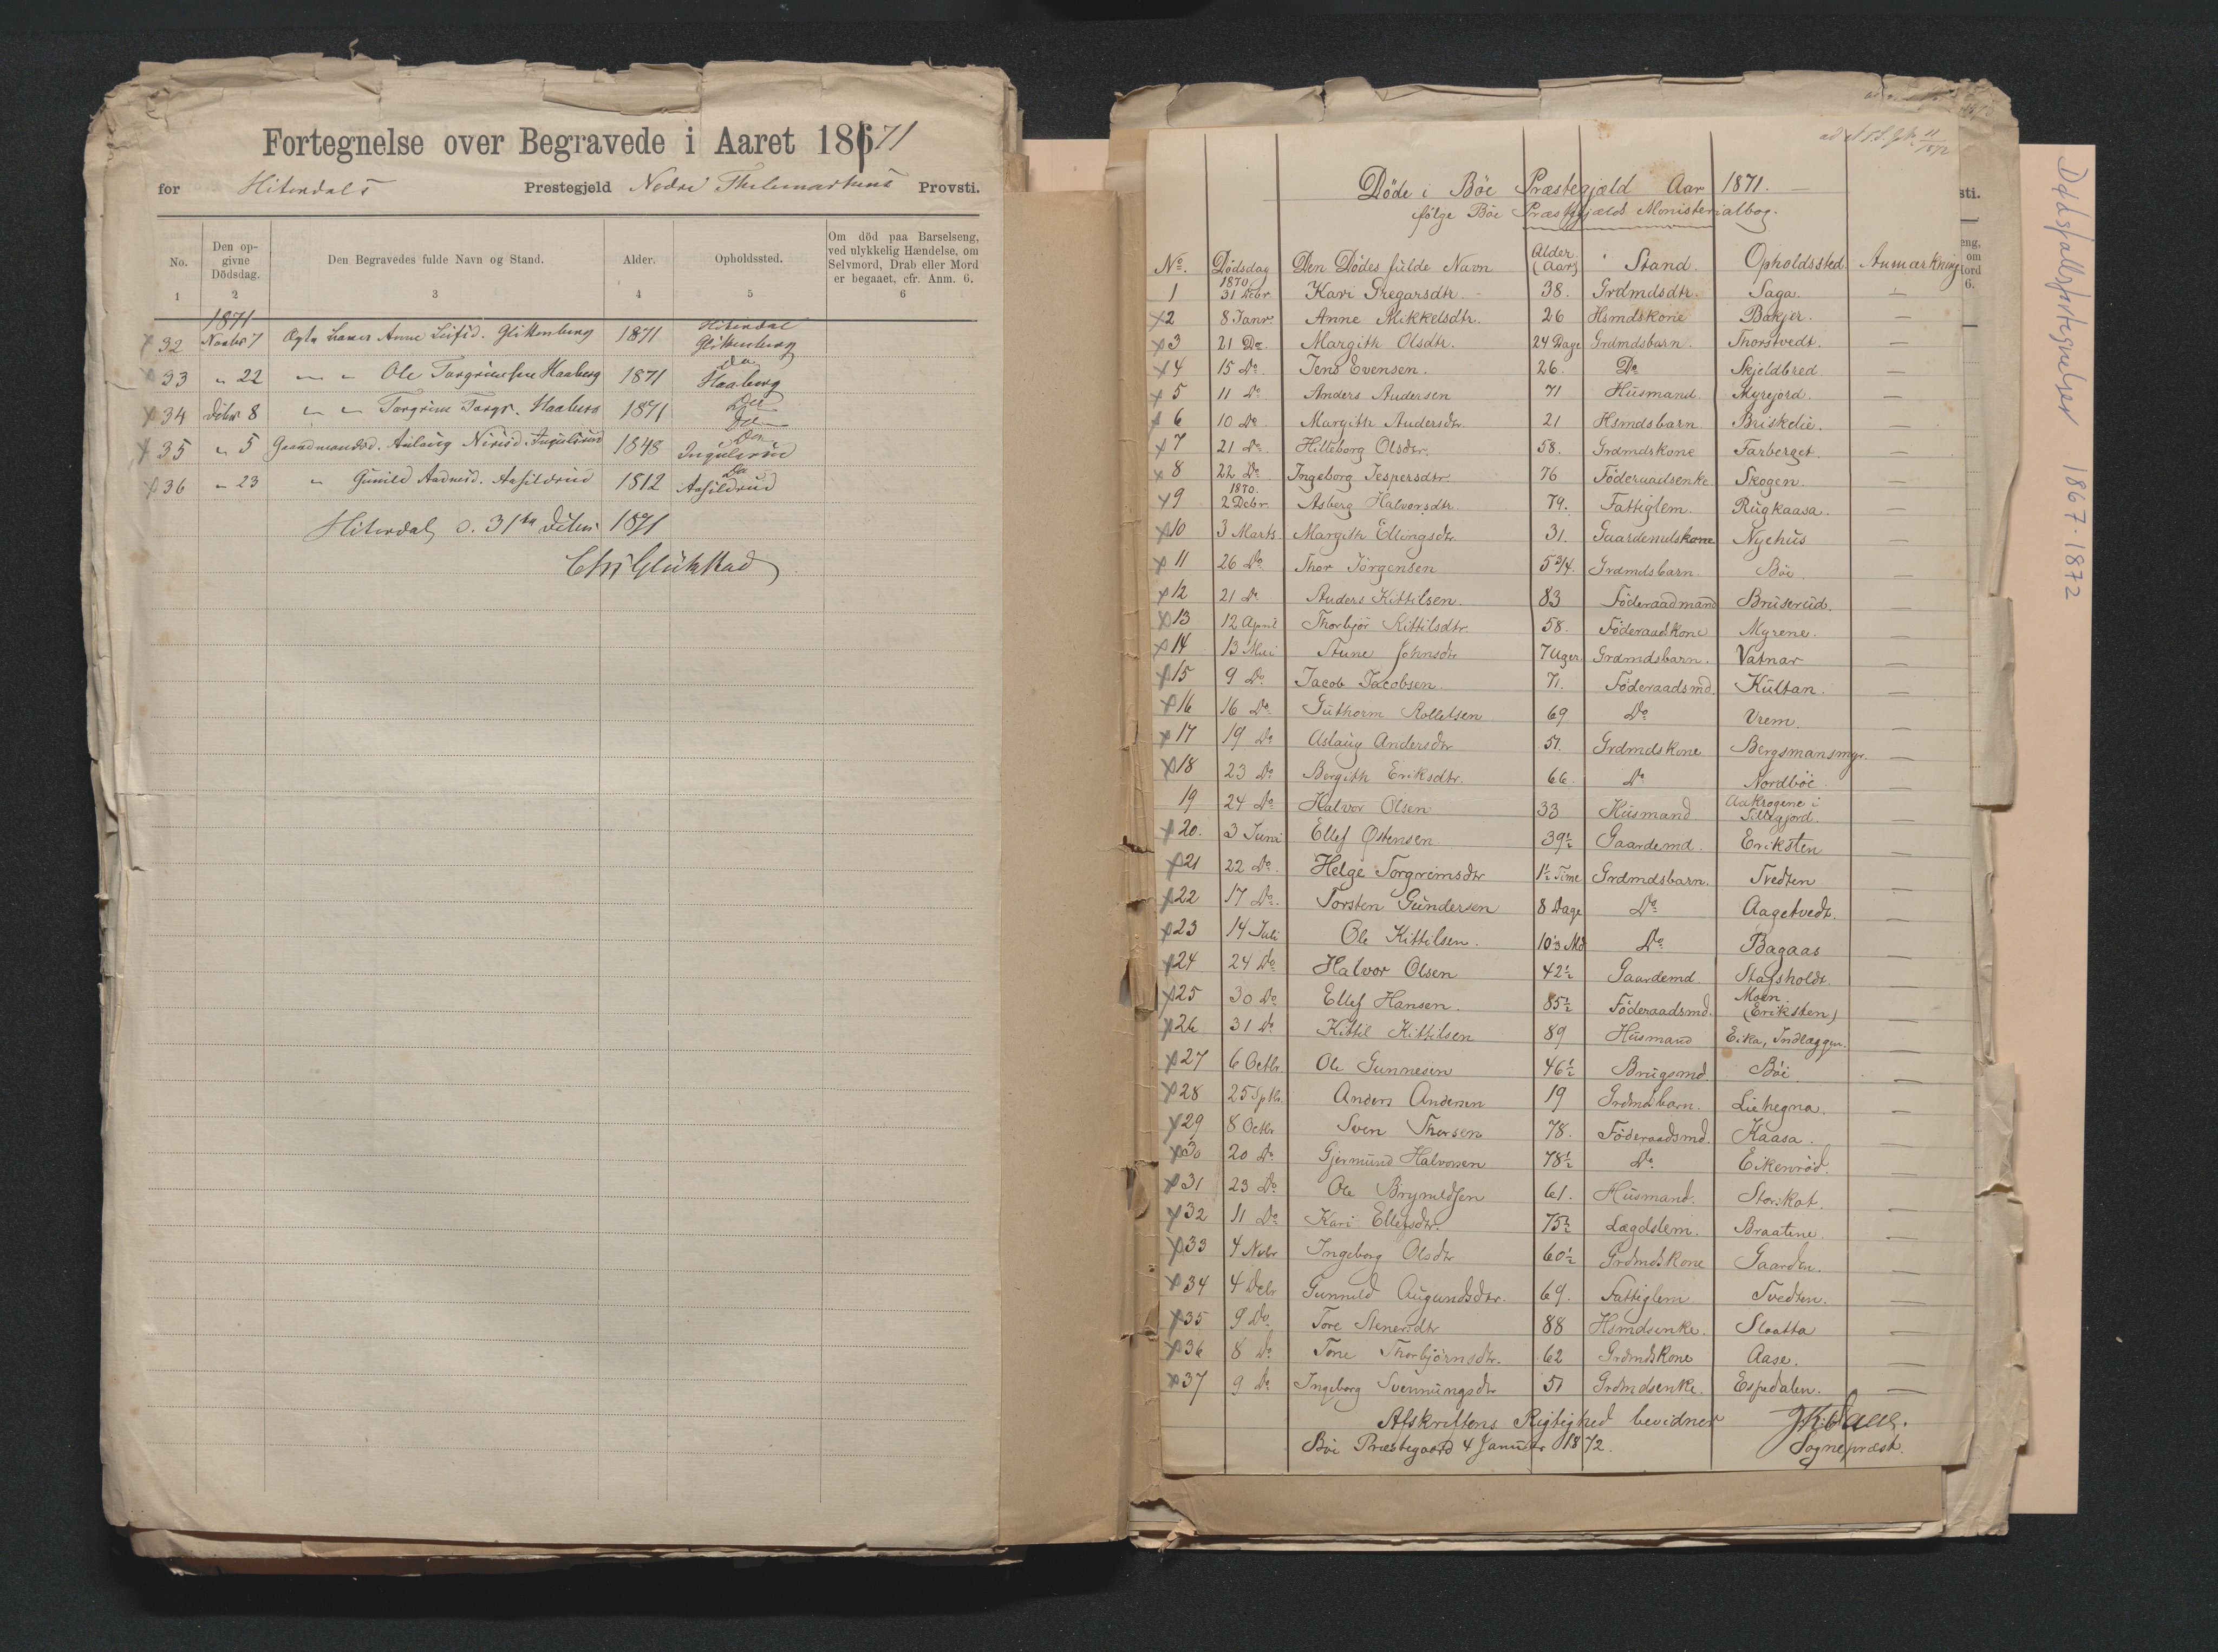 Fortegnelse over Begravede i Aaret 18671
for Hiterdals Prestegjeld Nedre Thelemarkens Provsti.
No. Den opgivne Dödsdag. Den Begravedes fulde Navn og Stand. Alder. Opholdssted. Om död paa Barselseng, ved ulykkelig Hændelse, om Selvmord, Drab eller Mord er begaaet, cfr. Anm. 6.
1 2 3 4 5 6
1871
x 32 Novbr 7 Ægte Anne 1871 Hiterdal
x 33 " 22 " " Ole Torgrimsen Haaberg 1871 Do Haaberg
x 34 Decbr 8 " " Torgrim Torgr. Haaberg 1871 Do
x 35 " 5 Aslaug 1848 Do
x 36 " 23 " Gunild 1812 Do Aasildrud
Hiterdal d. 31te Decbr 1871
Chr Glükstad
Döde i Böe Præstegjæld Aar 1871.
følge Böe Præstegjælds Ministerialbog.
No. Dödsdag Den Dödes fulde Navn Alder (Aar) Stand. Opholdssted Anmærkning
1870
1 31 Debr Kari Gregarsdtr. 38. Grdmdsdtr. Saga. —
x2 8 Janr. Anne Mikkelsdtr. 26 Hsmdskone Bakjer. —
x3 21 Do Margith Olsdtr. 24 Dage Grdmdsbarn. Thorstvedt. —
x4 15 Do Jens Evensen. 26. Do Skjeldbred. —
x5 11 Do Anders Andersen 71 Husmand. Myrejord. —
x6 10 Do Margith Andersdtr. 21 Hsmdsbarn. Briskelie. —
x7 21 Do Hilleborg Olsdtr. 58. Grdmdskone Farberget. —
x8 22 Do Ingeborg Jespersdtr. 76 Föderaadsenke. Skogen. —
1870.
x9 2 Debr. Asberg Halvorsdtr. 79. Fattiglem. Rugkaasa. —
x10 3 Marts Margith Ellingsdtr. 31. Gaardemdskone Nyehus —
x11 26 Do Thor Jörgensen 5 3/4. Grdmdsbarn. Böe. —
x12 21 Do Anders Kittilsen. 83 Föderaadmand Bruserud. —
x13 12 April Thorbjör Kittilsdtr. 58. Föderaadskone Myrene. —
x14 13 Mai Johnsdtr 7 Uger Grdmdsbarn. Vatnar —
x15 9 Do Jacob Jacobsen 71. Föderaadsmd. Kultan. —
x16 16 Do Guthorm Rolleksen 69 Do Vrem. —
x17 19 Do Aslaug Andersdtr 51. Grdmdskone Bergsmansmyr. —
x18 23 Do Bergith Eriksdtr. 66. Do Nordböe. —
19 24 Do Halvor Olsen 33 Husmand Aakrogene i Silligjord. —
x20. 3 Juni Ellef Østensen 39½ Gaardemd. Eriksten —
x21 22 Do. Helge Torgrimsdtr 1½ Time Grdmdsbarn. Tvedten —
x22 17 Do. Torsten Gundersen 8 Dage Do Aagetvedt. —
x23 14 Juli Ole Kittilsen. 10⅓ Md Do Bagaas —
x24 24 Do Halvor Olsen 42½ Gaardemd. Stafsholdt. —
x25 30 Do Ellef Hansen. 85½ Föderaadsmd. Moen (Eriksten) —
x26 31 Do Kittil Kittilsen 89 Husmand Eika, Indlæggen. —
x27 6 Octbr. Ole Gunnesen 46½ Brugsmd. Böi —
x28 25 Sptbr. Anders Andersen 19 Grdmdsbarn. Liehegna. —
x29 8 Octbr. Sven Thorsen 78. Föderaadsmd. Kaasa. —
x30 20 Do Gjermund Halvorsen 78½ Do Eikenröd. —
x31 23 Do Ole Brynuldsen 61. Husmand. Storikot. —
x32 11 Do Kari Ellefsdtr. 75½ Lægdslem. Braatene. —
x33 4 Nvbr Ingeborg Olsdtr 60½ Grdmdskone Gaarden. —
x34 4 Debr Gunnild Augundsdtr. 69. Fattiglem Tvedten. —
x35 9 Do. Tore Stenersdtr 88 Hsmdsenke. Slaatta —
x36 8 Do Tone Thorbjörnsdtr. 62 Grdmdskone Aase. —
x37 9 Do Ingeborg Svenningsdtr 51 Grdmdsenke. Espedalen. —
Afskriftens Rigtighed bevidner
Böi Præstegaard 4 Januar 1872. Sognepræst.
Dødsfallsfortegnelser 1867-1872